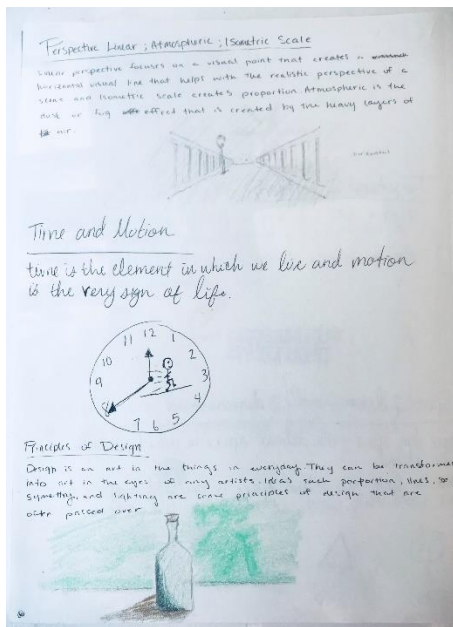 Perspective Linear ; Atmospheric ; Isometric Scale
Linear perspective focuses on a visual point that creates a
horizontal visual line that helps with the realistic perspective of a
and Isometric scale creates proportion. Atmospheric is the
or fog effect that is created by the heavy layers of
air.
Time and Motion
time is the element in which we live and motion
is the very sign of life.
11 12 1
10 2
9 3
8 4
7 6 5
Principles of Design
Design is an art in the things in everyday. They can be transformed
into art in the eyes of any artists. Ideas such porportion, lines, or
and lighting are some principles of design that are
passed over